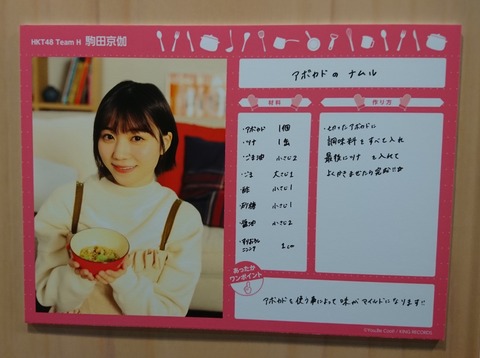 HKT48 Team H 駒田京伽
アボカドの ナムル
材料
・アボカド 1個
・ツナ 1缶
・ごま油 小さじ2
・ごま 大さじ1
・酢 小さじ1
・砂糖 小さじ1
・醤油 小さじ2
・すりおろしニンニク 1cm
作り方
・切ったアボカドに
調味料をすべて入れ
最後にツナを入れて
よくかきまぜたら完成!!
あったか
ワンポイント
アボカドを使う事によって味がマイルドになります!!
©Youtte Can! / KING RECORDS